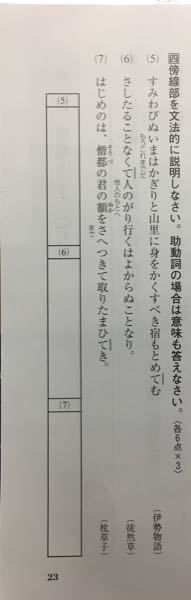 四 傍線部を文法的に説明しなさい。助動詞の場合は意味も答えなさい。〈各6点×3〉
(5) すみわびぬいまはかぎりと山里に身をかくすべき宿もとめてむ
もうこれまでだ
(伊勢物語)
(6) さしたることなくて人のがり行くはよからぬことなり。
他人のもとへ
(徒然草)
(7) はじめのは、僧都の君の額をさへつきて取りたまひてき。
そうづ
ぬか
まで
(枕草子)
(5)
(6)
(7)
23